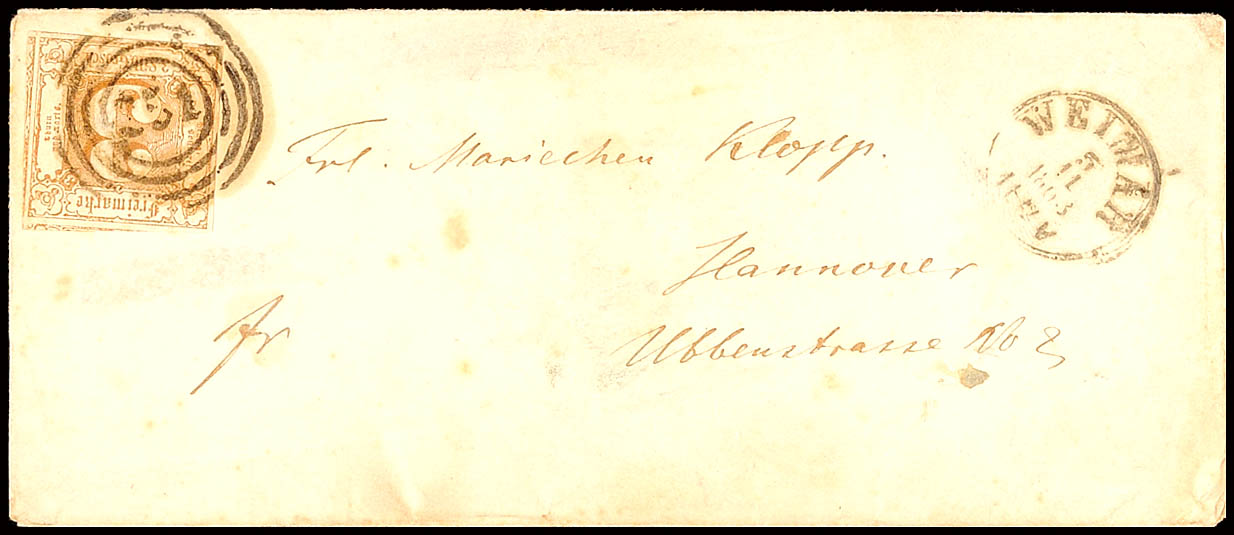 Freimarke
WEIMAR
1863
Frl. Mariechen Klopp.
Hannover
fr
Ubbenstrasse No 2